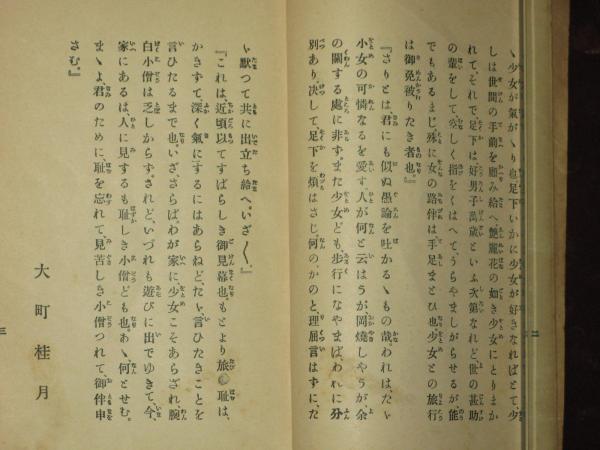 二
ゝ少女が氣がゝり也足下いかに少女が好きなればとて少
しは世間の手前を顧み給へ艶麗花の如き少女にとりまか
れて、それで足下は、好男子萬歳といふ次第なれど世の甚助
の輩をして、空しく指をくはへて、うらやましがらせるが能
でもあるまじ殊に女の路伴は手足まとひ也少女との旅行
は御免被りたき者也。』
『さりとは君にも似ぬ愚論を吐かるゝもの哉。われは、たゞ
小女の可憐なるを愛す。人が何と云はうが岡燒しやうが、余
の關する處に非ず。また少女ども、歩行になやまば、われに分
別あり、決して、足下を煩はさじ。何のかのと、理屈言はずに、だ
ゞ默つて共に出立ち給へ。いざ〱。』
『これは、近頃以てすばらしき御見幕也もとより旅の耻は、
かきすて、深く氣にするにはあらねど、たゞ言ひたきことを
言ひたるまで也。いざさらば、わが家に少女こそあらざれ、腕
白小僧は乏しからず。されど、いづれも遊びに出でゆきて、今、
家にあるは、人に見するも耻しき小僧ども也。あゝ、何とせむ。
まゝよ、君のために、耻を忘れて、見苦しき小僧つれて、御伴申
さむ。』
大町桂月
三